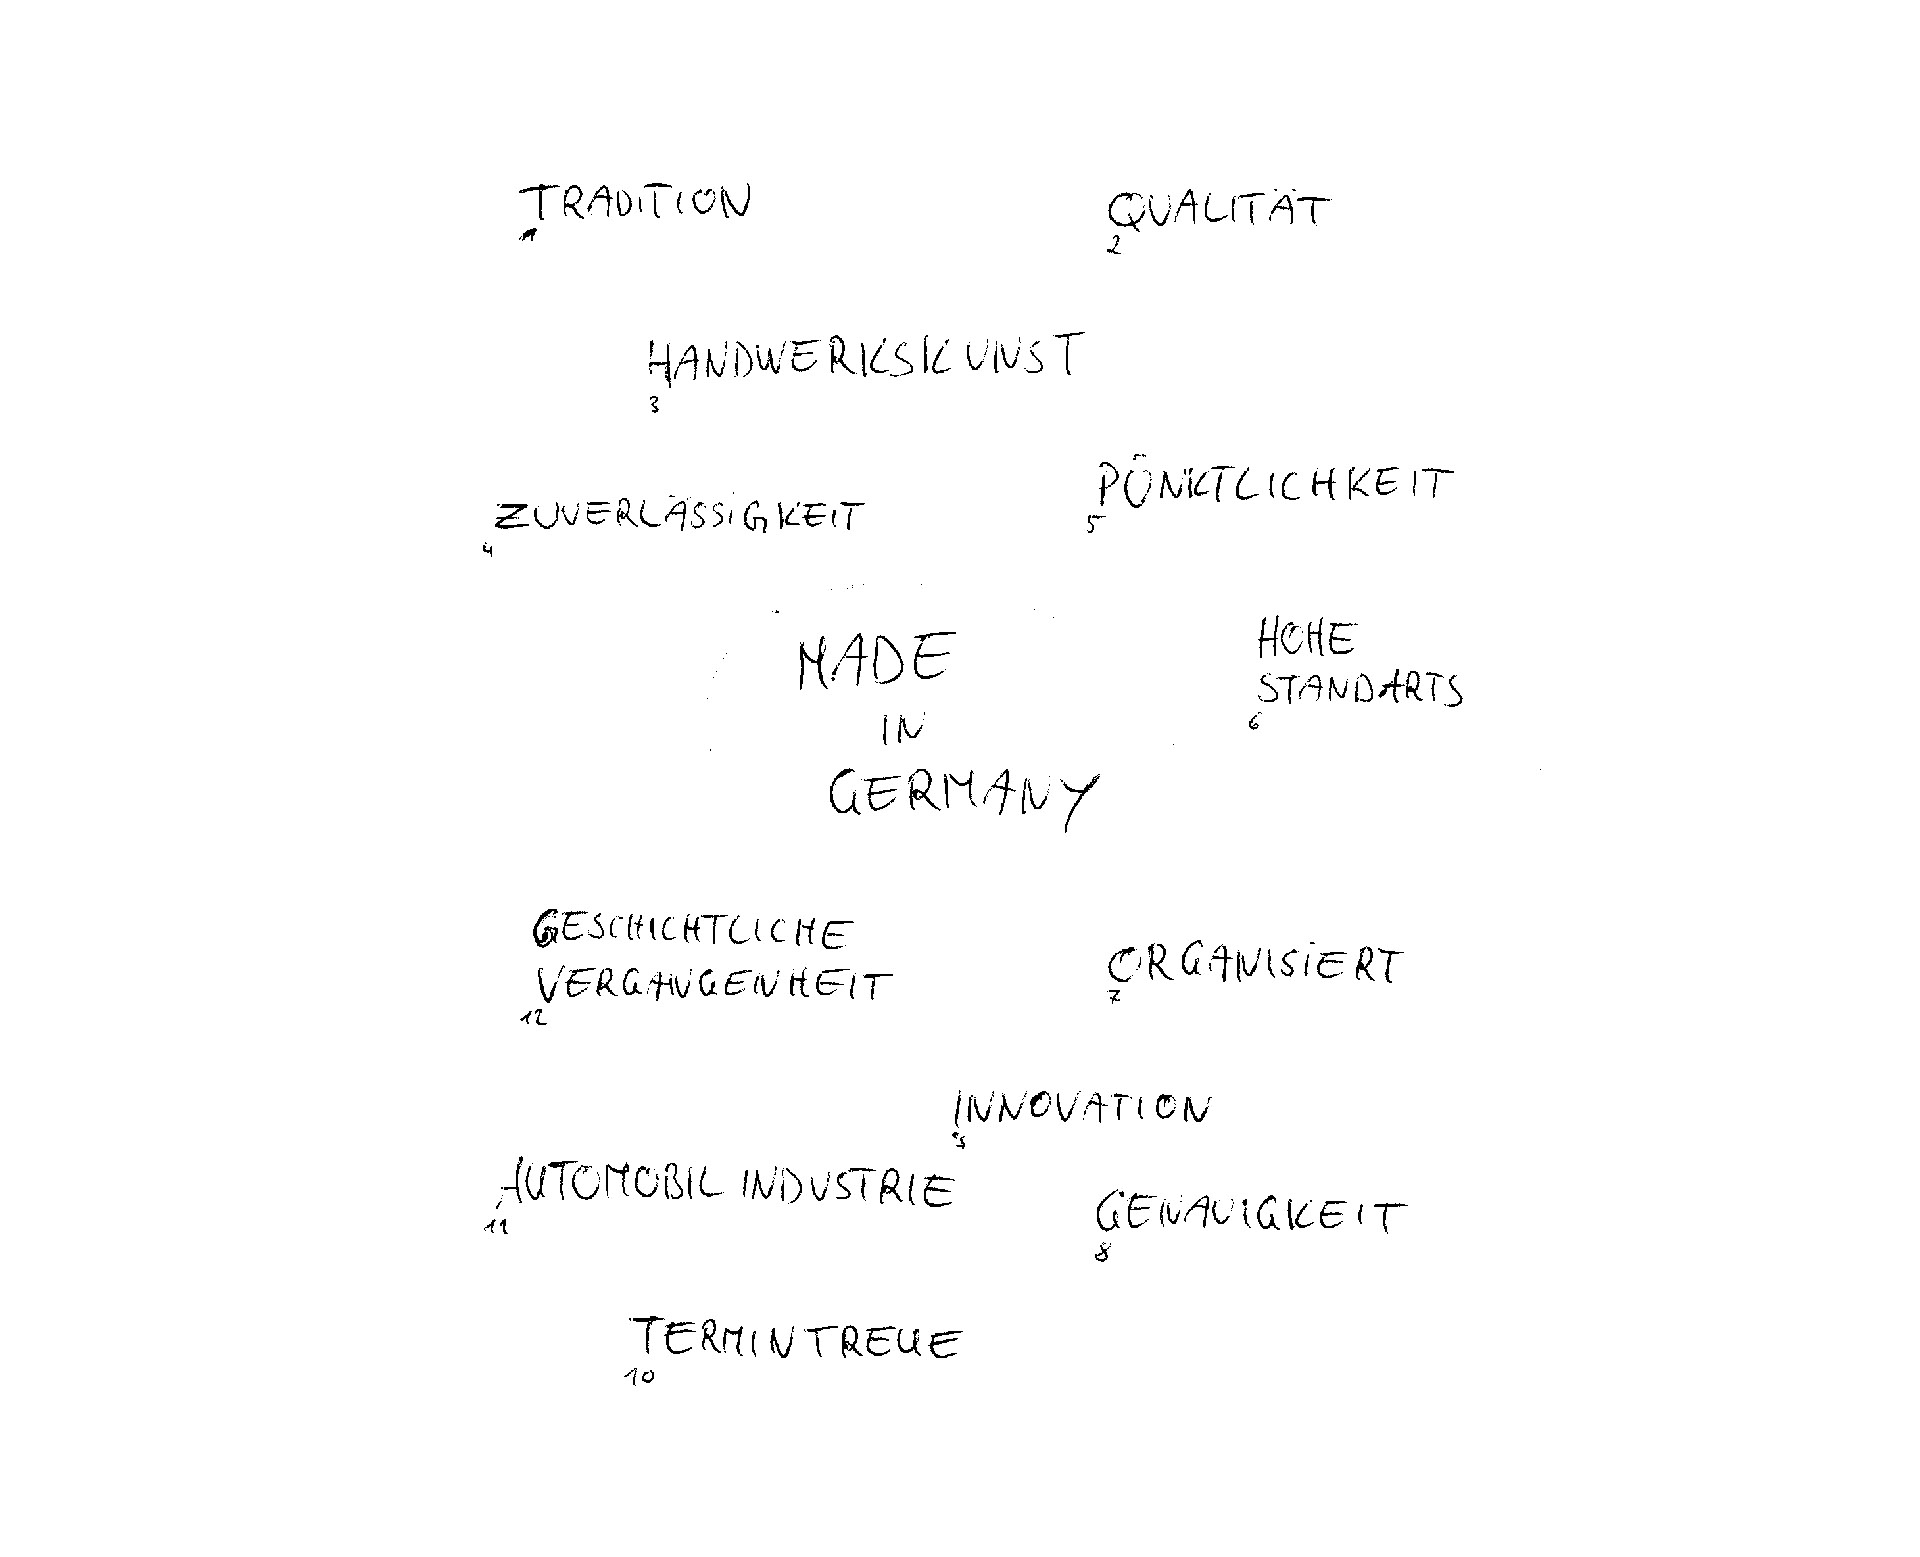 TRADITION
1
QUALITÄT
2
HANDWERKSKUNST
3
PÜNKTLICHKEIT
5
ZUVERLÄSSIGKEIT
4
HOHE
STANDARTS
6
MADE
IN
GERMANY
GESCHICHTLICHE
VERGANGENHEIT
12
ORGANISIERT
7
INNOVATION
9
AUTOMOBIL INDUSTRIE
11
GENAUIGKEIT
8
TERMINTREUE
10